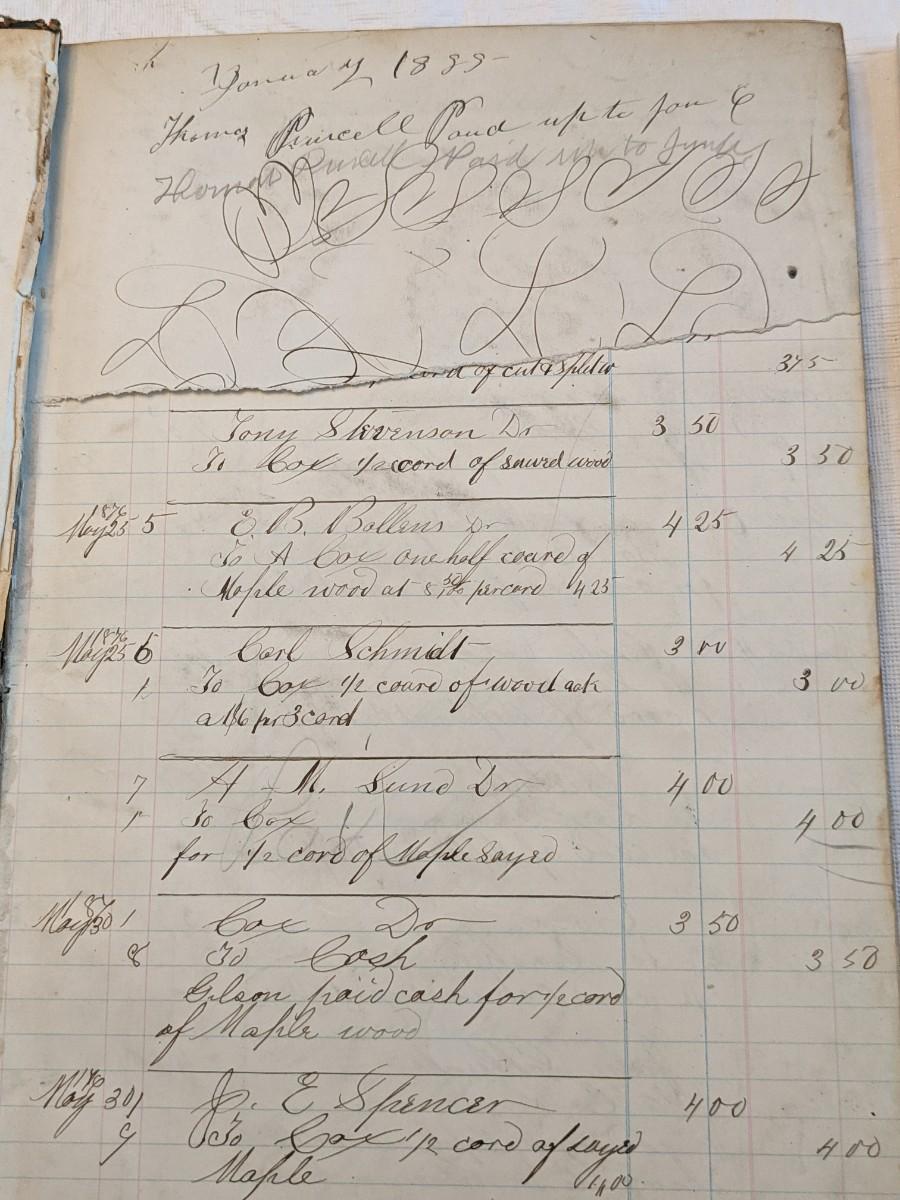 January 1899
Thomas Purcell Paid up to jan 6
Thomas Purcell Paid up to June
of cut & split w 375
Tony Stevenson Dr 3 50
To Cox 1/2 coord of sawed wood 3 50
1876
May 25 5 E. B. Bollens Dr 4 25
To A Cox one half coard of 4 25
Maple wood at 8 50/100 per cord 4 25
1876
May 25 6 Carl Schmidt 3 00
1 To Cox 1/2 coard of wood 3 00
at $6 pr cord
7 A M. Sund Dr 4 00
1 To Cox 4 00
for 1/2 cord of Maple Sayed
May 30 1 Cox Dr 3 50
8 To Cash 3 50
Gilson paid cash for 1/2 cord
of Maple wood
1876
May 30 1 J. E Spencer 4 00
9 To Cox 1/2 cord of sayed 4 00
Maple 4,00